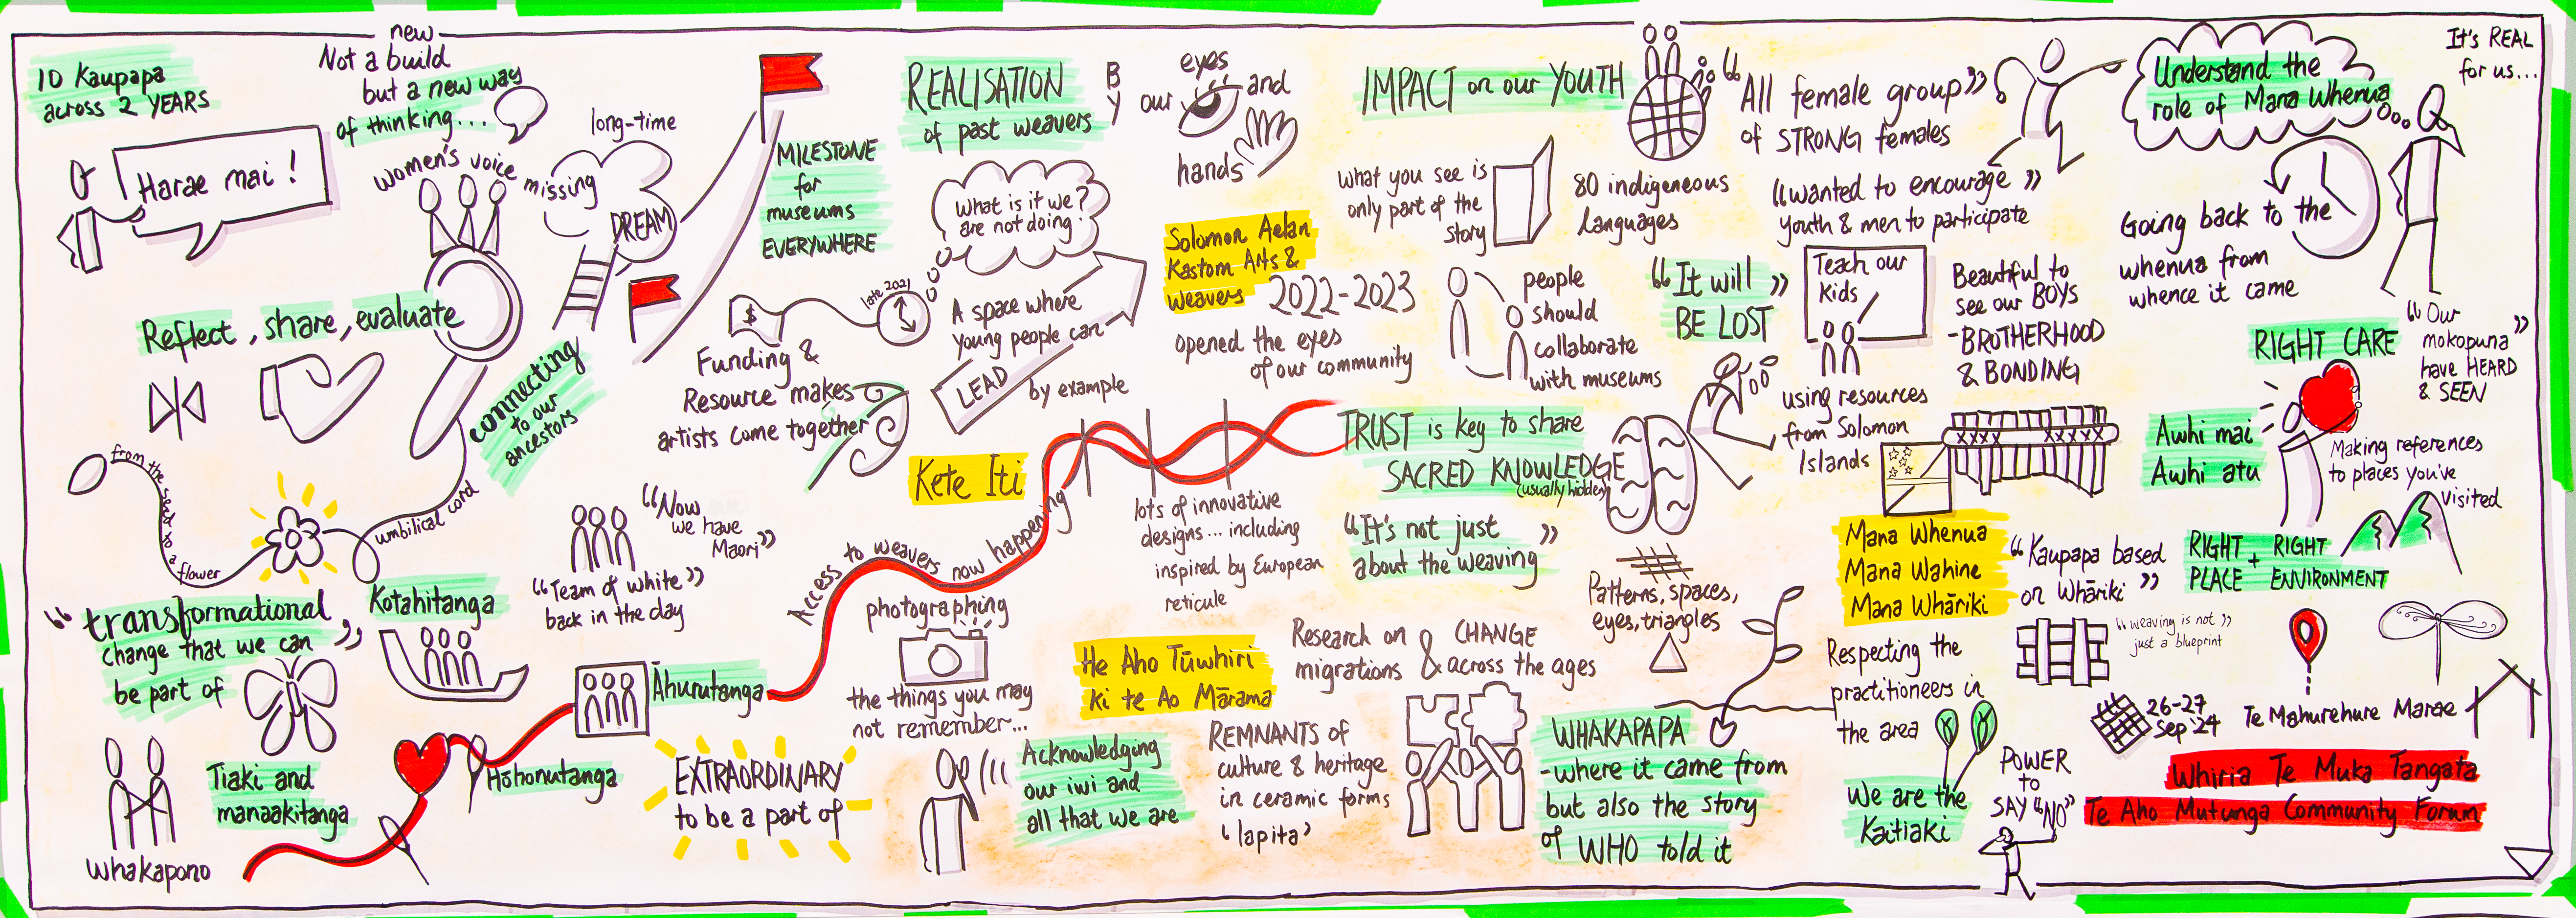 10 Kaupapa
across 2 YEARS
Harae mai!
new
Not a build
but a new way
of thinking...
women's voice
missing
long-time
DREAM
Reflect, share, evaluate
connecting
to our
ancestors
from the seed to a flower
umbilical cord
"transformational
change that we can"
be part of
Kotahitanga
Tiaki and
manaakitanga
Whakapono
Hōhonutanga
Āhurutanga
"Now
we have
Maori"
"Team of white"
back in the day
EXTRAORDINARY
to be a part of
MILESTONE
for
museums
EVERYWHERE
$
late 2021
Funding &
Resource makes
artists come together
REALISATION
of past weavers
BY
our
eyes
and
hands
What is it we?
are not doing
A space where
young people can
LEAD
by example
Solomon Aelan
Kastom Arts &
weavers
2022-2023
opened the eyes
of our community
Kete Iti
Access to weavers now happening
lots of innovative
designs... including
inspired by European
reticule
photographing
the things you may
not remember...
Acknowledging
our iwi and
all that we are
He Aho Tūwhiri
Ki te Ao Mārama
REMNANTS of
culture & heritage
in ceramic forms
'lapita'
Research on
migrations
&
CHANGE
across the ages
IMPACT on our YOUTH
what you see is
only part of the
story
80 indigeneous
languages
people
should
collaborate
with museums
TRUST is key to share
SACRED KNOWLEDGE
(usually hidden)
"It's not just
about the weaving"
Patterns, spaces,
eyes, triangles
WHAKAPAPA
-where it came from
but also the story
of WHO told it
"All female group"
of STRONG females
"wanted to encourage"
youth & men to participate
"It will"
BE LOST
Teach our
Kids
using resources
from Solomon
Islands
Beautiful to
see our BOYS
-BROTHERHOOD
& BONDING
XXXX XXXXX
Mana Whenua
Mana Wahine
Mana Whāriki
"Kaupapa based
on Whāriki"
"weaving is not"
just a blueprint
Respecting the
practitioneers in
the area
We are the
Kaitiaki
POWER
to
SAY "NO"
Understand the
role of Mana Whenua
It's REAL
for us...
Going back to the
whenua from
whence it came
RIGHT CARE
"Our
mokopuna"
have HEARD
& SEEN
Awhi mai
Awhi atu
Making references
to places you've
visited
RIGHT PLACE
+
RIGHT ENVIRONMENT
26-27
Sep '24
Te Mahurehure Marae
Whiria Te Muka Tangata
Te Aho Mutunga Community Forum